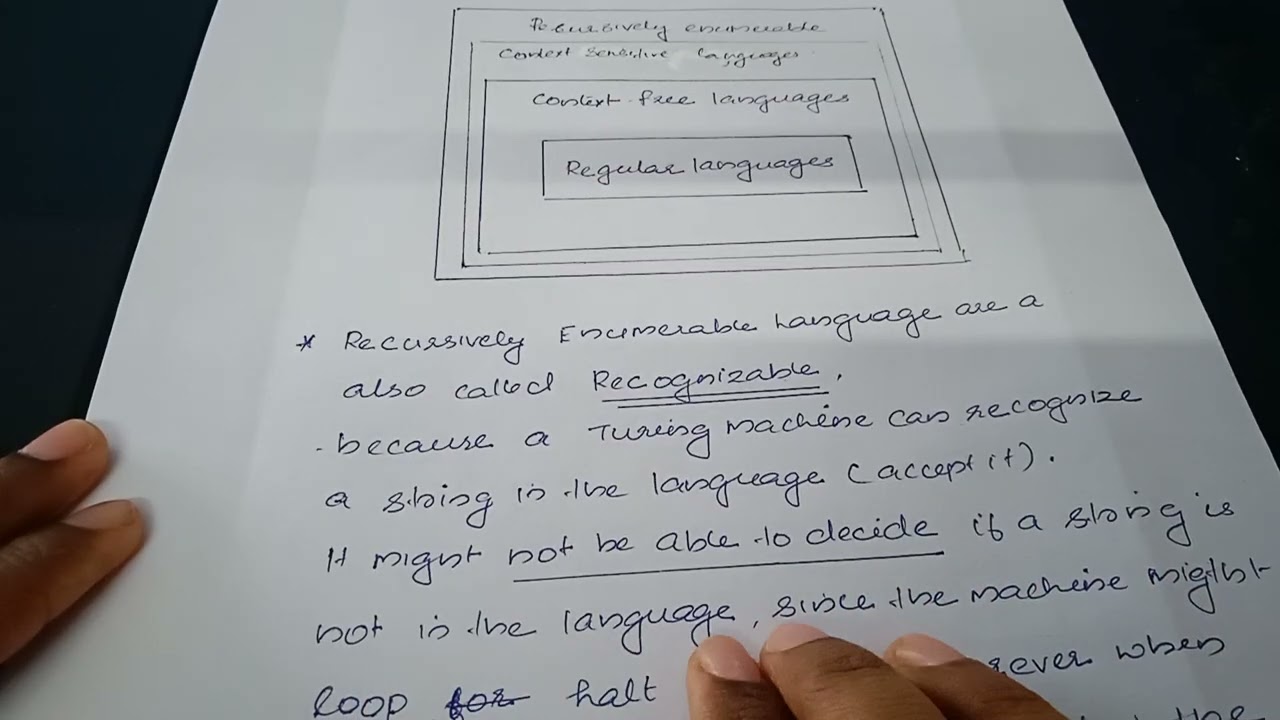 Recursively enumerable
Context sensitive languages
Context-free languages
Regular languages
* Recursively Enumerable Language are a
also called Recognizable.
- because a Turing machine can recognize
a string in the language (accept it).
It might not be able to decide if a string is
not in the language, since the machine might
loop for halt when
the